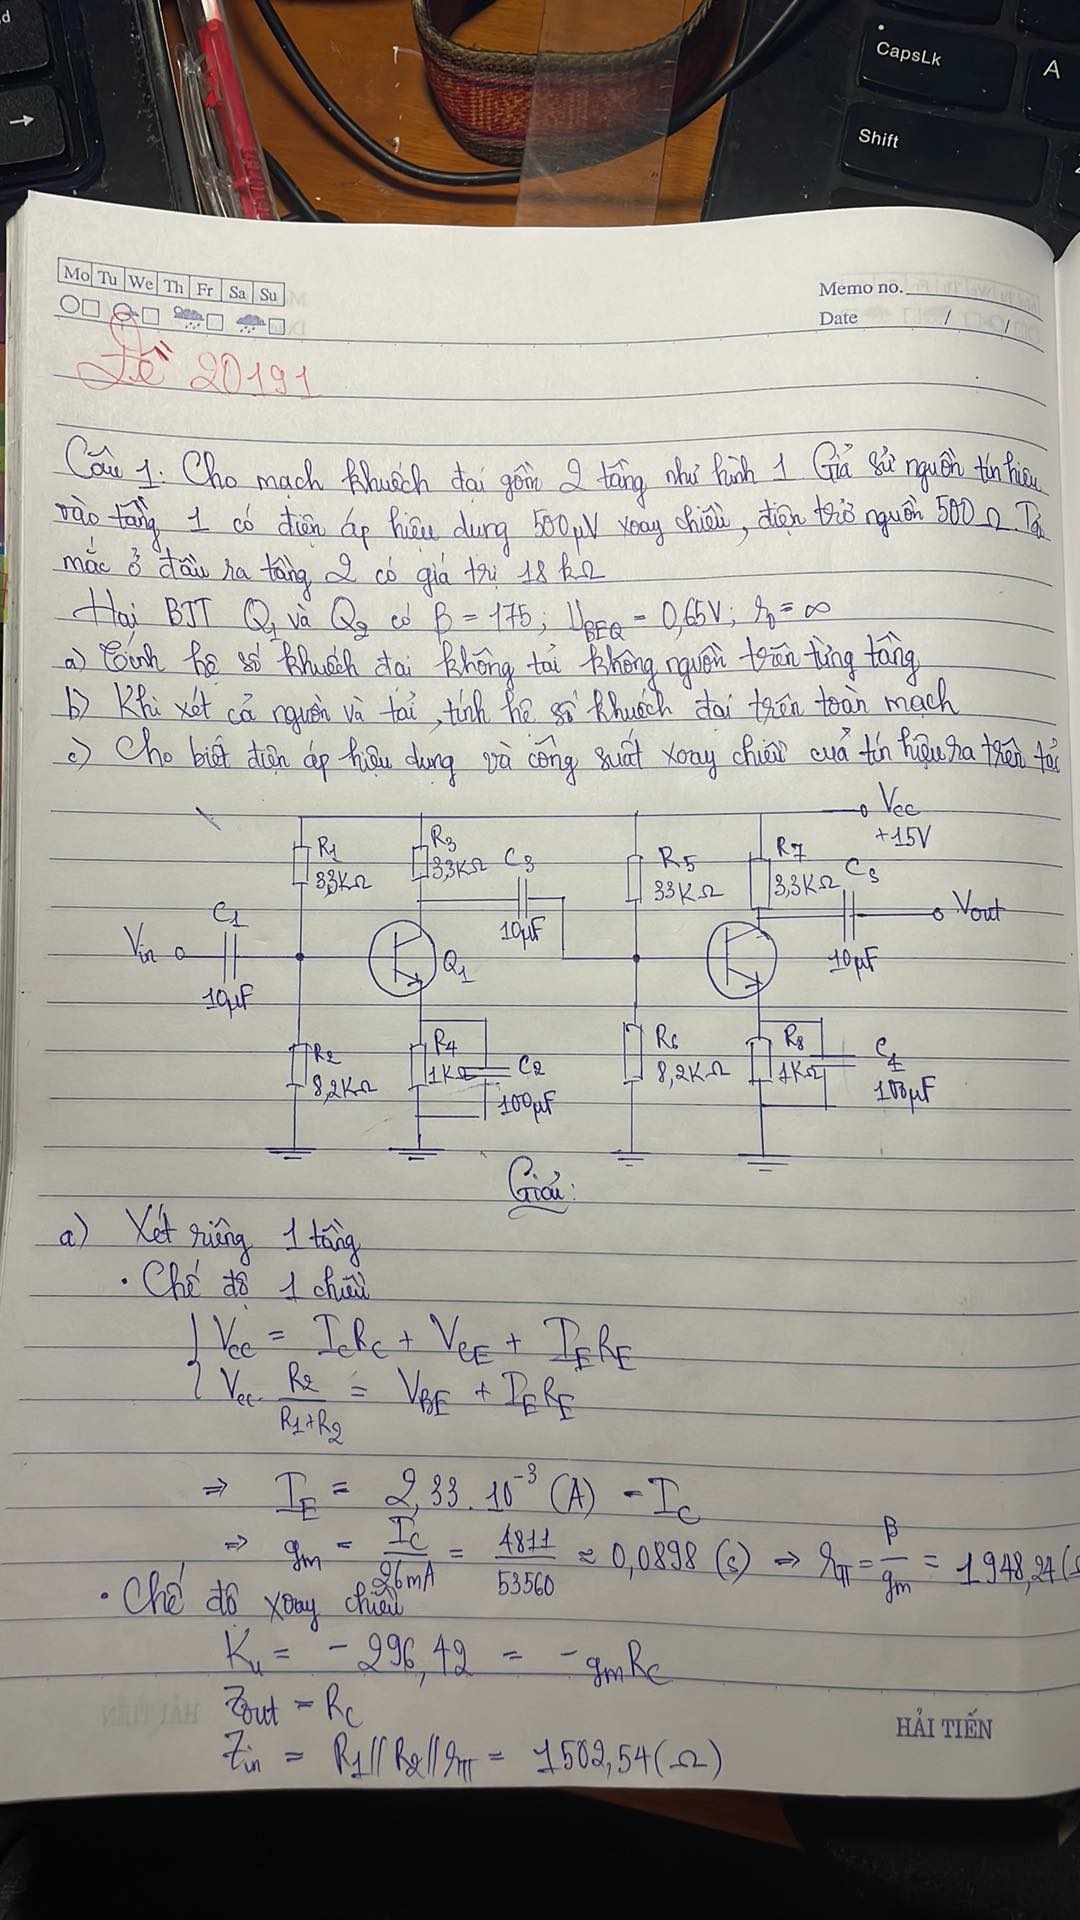 d
→
CapsLk
A
Shift
Mo Tu We Th Fr Sa Su
Memo no.
Date / /
Đề 20191
Câu 1. Cho mạch khuếch đại gồm 2 tầng như hình 1 Giả sử nguồn tín hiệu
vào tầng 1 có điện áp hiệu dụng 500μV xoay chiều, điện trở nguồn 500Ω. Tải
mắc ở đầu ra tầng 2 có giá trị 18 kΩ
Hai BJT Q1 và Q2 có β = 175; UBEQ = 0,65V; r0 = ∞
a) Tính hệ số khuếch đại không tải không nguồn trên từng tầng
b) Khi xét cả nguồn và tải, tính hệ số khuếch đại trên toàn mạch
c) Cho biết điện áp hiệu dụng và công suất xoay chiều của tín hiệu ra trên tải
Vcc
+15V
R1
33KΩ
R3
3,3KΩ
C3
10μF
R5
33KΩ
R7
3,3KΩ
C5
10μF
Vout
Vin
C1
10μF
Q1
R2
8,2KΩ
R4
1KΩ
C2
100μF
R6
8,2KΩ
R8
1KΩ
C4
100μF
Giải:
a) Xét riêng 1 tầng
• Chế độ 1 chiều
{ Vcc = IcRc + VCE + IERE
Vcc. R2/(R1+R2) = VBE + IERE
⇒ IE = 2,33.10⁻³ (A) = IC
⇒ gm = IC/26mA = 4811/53560 ≈ 0,0898 (s) ⇒ rπ = β/gm = 1948,24(
• Chế độ xoay chiều
Ku = -296,42 = -gmRc
Zout = Rc
Zin = R1//R2//rπ = 1502,54(Ω)
HẢI TIẾN